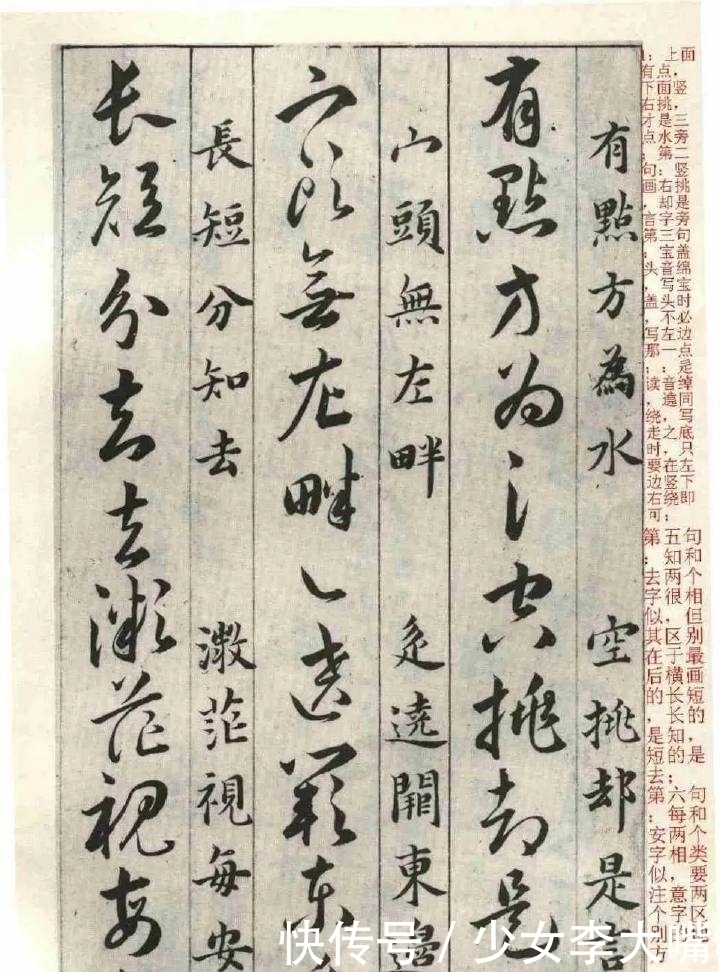 ：上面
有点，
下面竖
右挑，
才是三
点水旁
；第二
句：竖
画右挑
，却是
言字旁
第三句
：宝盖
头音绵
，写宝
盖头时
，不必
写左边
那一点
；：是
读音绰
，遶同
绕，写
走之底
时，只
要在左
边竖下
右绕即
可；
第五句
：知和
去两个
字很相
似，但
其区别
在于最
后横画
的长短
，长的
是知，
短的是
去；
第六句
：每和
安两个
字相类
似，要
注意两
个字区
别方
有點方為水 空挑却是言
有點方为氵空挑却是
宀頭無左畔 辵遶闕東邊
宀頭無左畔辶遶闕東
長短分知去 溦茫視每安
長短分知去溦茫視每
快传号 / 少女李大嘴